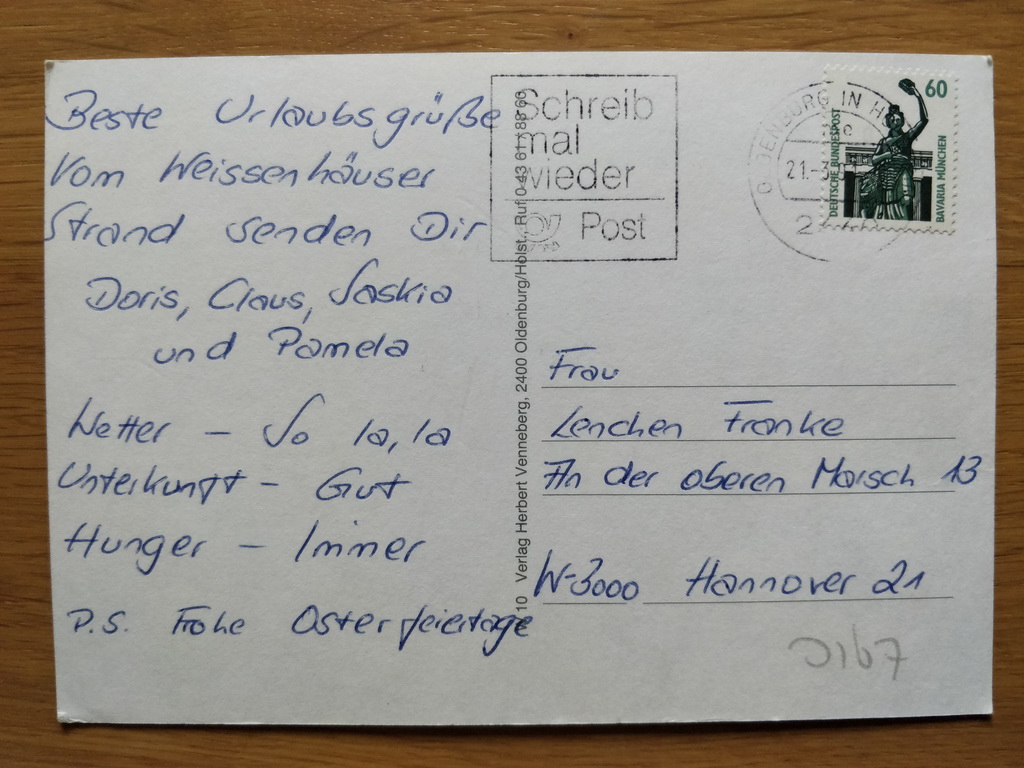 Beste Urlaubsgrüße
Vom Weissenhäuser
Strand senden Dir
Doris, Claus, Saskia
und Pamela
Wetter – So la, la
Unterkunft – Gut
Hunger – Immer
P.S. Frohe Osterfeiertage
Schreib
mal
wieder
Post
10 Verlag Herbert Venneberg, 2400 Oldenburg/Holst., Ruf 0 43 61 / 80 60
OLDENBURG IN H
21.-3
60
DEUTSCHE BUNDESPOST
BAVARIA MÜNCHEN
Frau
Lenchen Franke
An der oberen Marsch 13
W-3000 Hannover 21